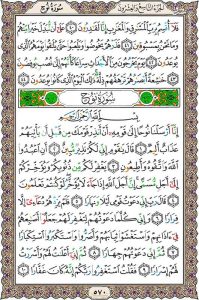 الجزء التاسع والعشرون سورة نوح
فَلَا أُقْسِمُ بِرَبِّ الْمَشَارِقِ وَالْمَغَارِبِ إِنَّا لَقَادِرُونَ ٤٠ عَلَىٰ أَن نُّبَدِّلَ خَيْرًا
مِّنْهُمْ وَمَا نَحْنُ بِمَسْبُوقِينَ ٤١ فَذَرْهُمْ يَخُوضُوا وَيَلْعَبُوا حَتَّىٰ يُلَاقُوا يَوْمَهُمُ الَّذِي
يُوعَدُونَ ٤٢ يَوْمَ يَخْرُجُونَ مِنَ الْأَجْدَاثِ سِرَاعًا كَأَنَّهُمْ إِلَىٰ نُصُبٍ يُوفِضُونَ
٤٣ خَاشِعَةً أَبْصَارُهُمْ تَرْهَقُهُمْ ذِلَّةٌ ذَٰلِكَ الْيَوْمُ الَّذِي كَانُوا يُوعَدُونَ ٤٤
سُورَةُ نُوحٍ
بِسْمِ اللَّهِ الرَّحْمَٰنِ الرَّحِيمِ
إِنَّا أَرْسَلْنَا نُوحًا إِلَىٰ قَوْمِهِ أَنْ أَنذِرْ قَوْمَكَ مِن قَبْلِ أَن يَأْتِيَهُمْ
عَذَابٌ أَلِيمٌ ١ قَالَ يَا قَوْمِ إِنِّي لَكُمْ نَذِيرٌ مُّبِينٌ ٢ أَنِ اعْبُدُوا
اللَّهَ وَاتَّقُوهُ وَأَطِيعُونِ ٣ يَغْفِرْ لَكُم مِّن ذُنُوبِكُمْ وَيُؤَخِّرْكُمْ
إِلَىٰ أَجَلٍ مُّسَمًّى إِنَّ أَجَلَ اللَّهِ إِذَا جَاءَ لَا يُؤَخَّرُ لَوْ كُنتُمْ تَعْلَمُونَ
٤ قَالَ رَبِّ إِنِّي دَعَوْتُ قَوْمِي لَيْلًا وَنَهَارًا ٥ فَلَمْ يَزِدْهُمْ دُعَائِي
إِلَّا فِرَارًا ٦ وَإِنِّي كُلَّمَا دَعَوْتُهُمْ لِتَغْفِرَ لَهُمْ جَعَلُوا أَصَابِعَهُمْ
فِي آذَانِهِمْ وَاسْتَغْشَوْا ثِيَابَهُمْ وَأَصَرُّوا وَاسْتَكْبَرُوا اسْتِكْبَارًا
٧ ثُمَّ إِنِّي دَعَوْتُهُمْ جِهَارًا ٨ ثُمَّ إِنِّي أَعْلَنتُ لَهُمْ وَأَسْرَرْتُ
لَهُمْ إِسْرَارًا ٩ فَقُلْتُ اسْتَغْفِرُوا رَبَّكُمْ إِنَّهُ كَانَ غَفَّارًا ١٠
٥٧٠